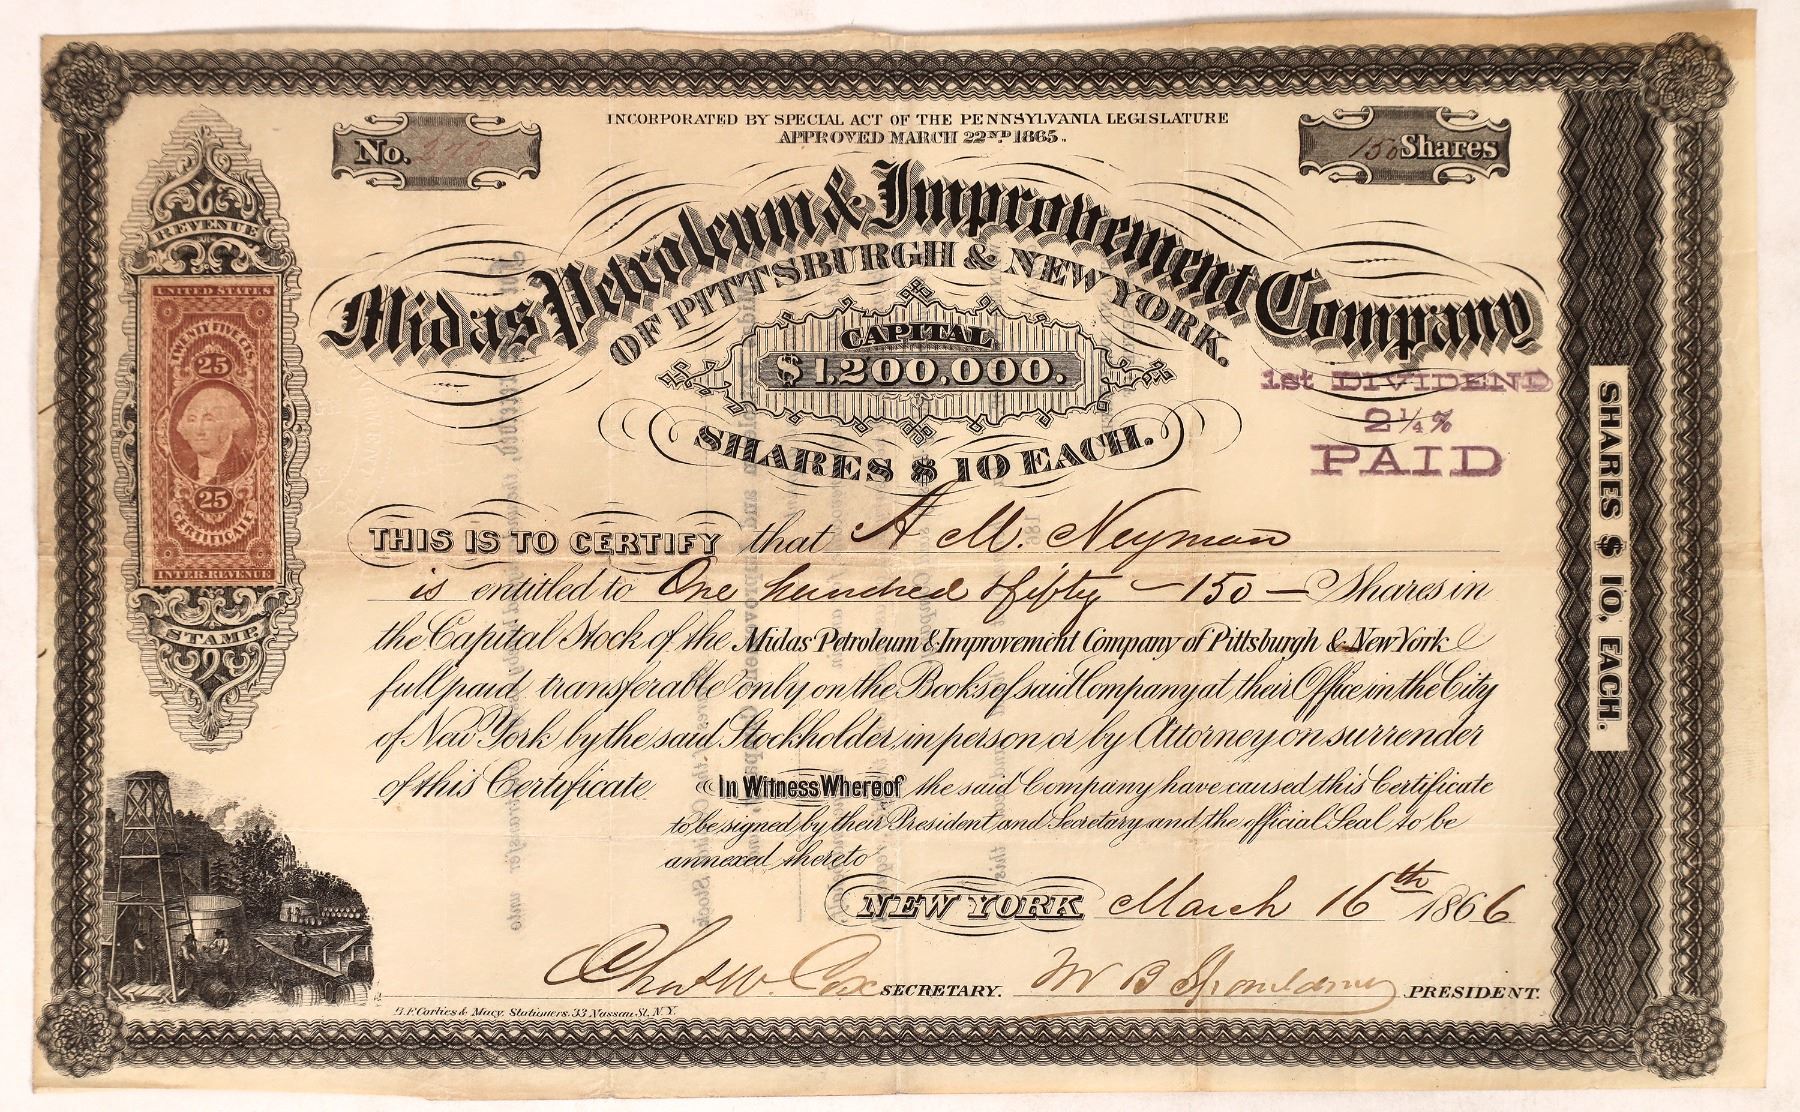 INCORPORATED BY SPECIAL ACT OF THE PENNSYLVANIA LEGISLATURE
APPROVED MARCH 22ND 1865.
No. 273
150 Shares
Midas Petroleum & Improvement Company
OF PITTSBURGH & NEW YORK.
CAPITAL
$1,200,000.
SHARES $10 EACH.
1st DIVIDEND
2¼%
PAID
REVENUE
UNITED STATES
TWENTY FIVE CTS.
25
25
CERTIFICATE
INTER. REVENUE
STAMP.
THIS IS TO CERTIFY that A M. Neyman
is entitled to One hundred & fifty - 150 - Shares in
the Capital Stock of the Midas Petroleum & Improvement Company of Pittsburgh & New York
full paid transferable only on the Books of said Company at their Office in the City
of New York by the said Stockholder, in person or by Attorney, on surrender
of this Certificate In Witness Whereof the said Company have caused this Certificate
to be signed by their President and Secretary and the official Seal to be
annexed thereto
NEW YORK March 16th 1866
Chas W. Cox SECRETARY. W B Spoulding PRESIDENT.
B.F. Corlies & Macy, Stationers. 33 Nassau St. N.Y.
SHARES $ 10, EACH.